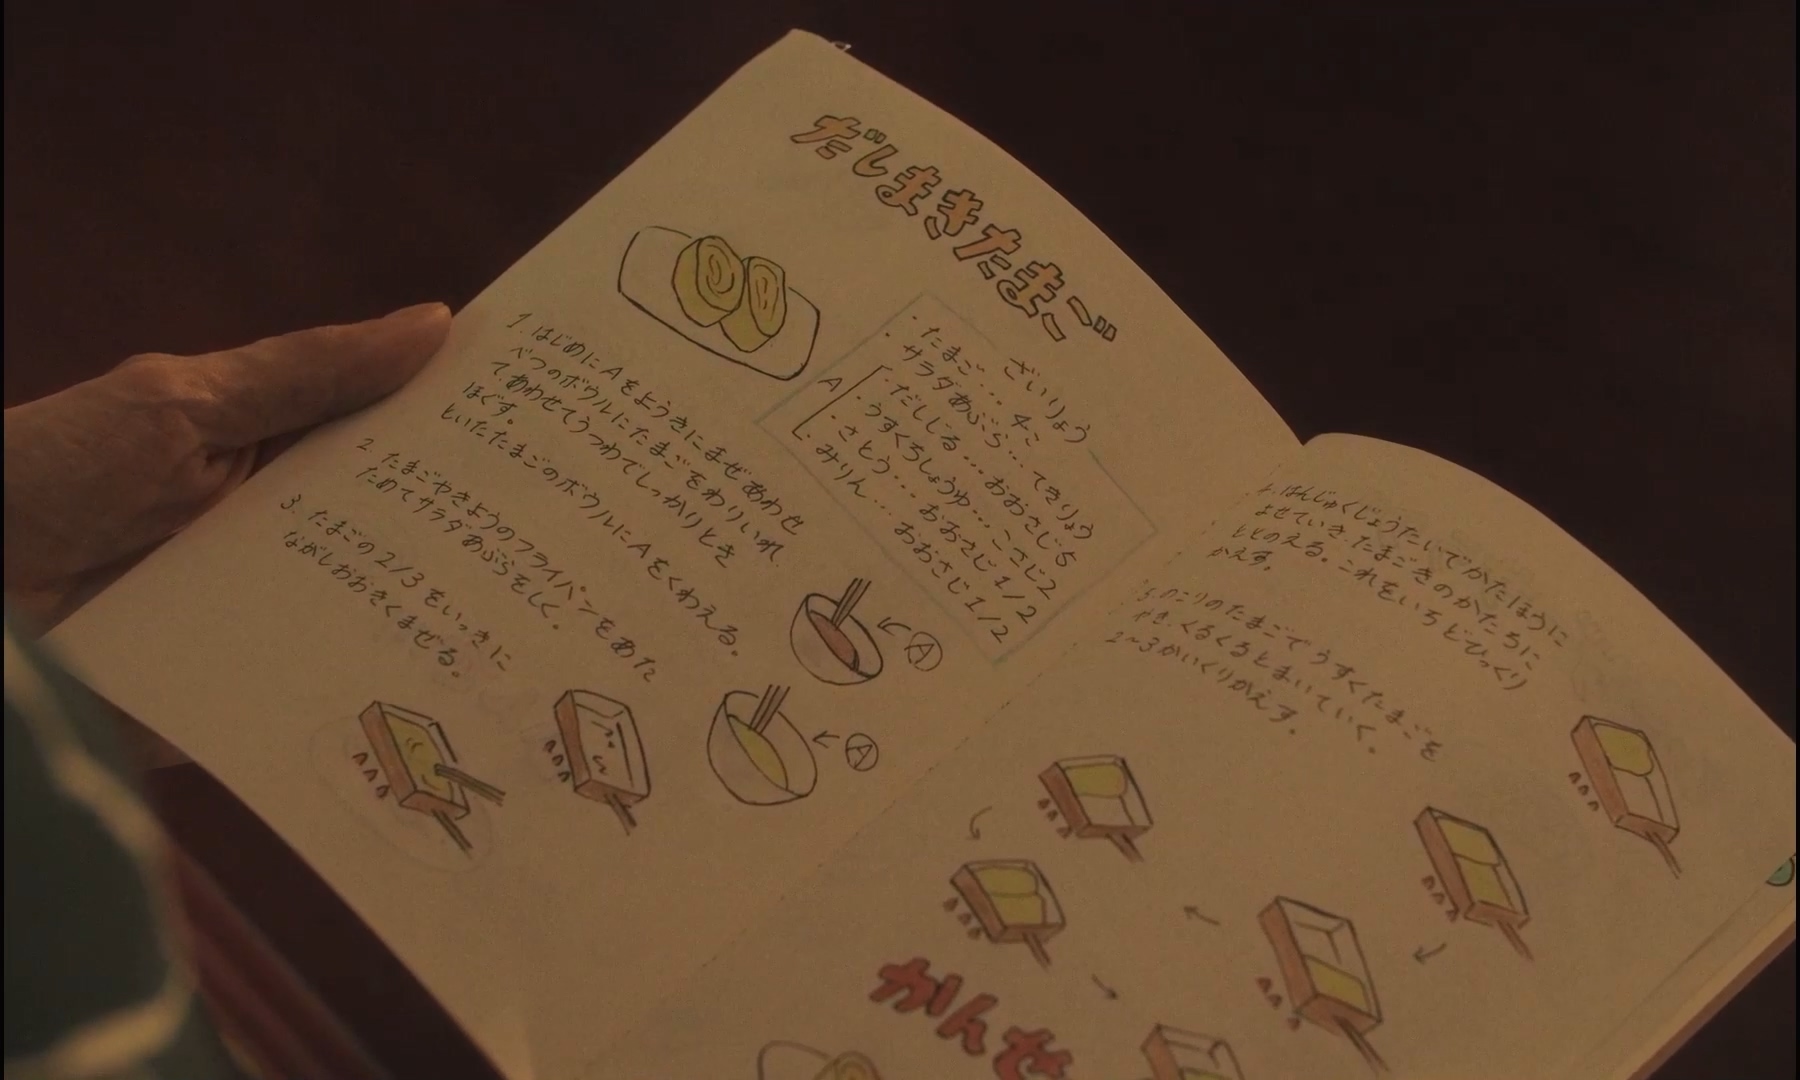 だしまきたまご
ざいりょう
・たまご... 4こ
・サラダあぶら... てきりょう
A
・だしじる... おおさじ5
・うすくちしょうゆ... こさじ2
・さとう... おおさじ1/2
・みりん... おおさじ1/2
1. はじめにAをようきにまぜあわせ
べつのボウルにたまごをわりいれ
て、あわせてうつわでしっかりとき
ほぐす。
といたたまごのボウルにAをくわえる。
2. たまごやきようのフライパンをあた
ためてサラダあぶらをしく。
3. たまごの2/3をいっきに
ながしおおきくまぜる。
A
A
4. はんじゅくじょうたいでかたほうに
よせていき、たまごきのかたちに
ととのえる。これをいちどひっくり
かえす。
5. のこりのたまごでうすくたまごを
やき、くるくるとまいていく。
2~3かいくりかえす。
かんせ